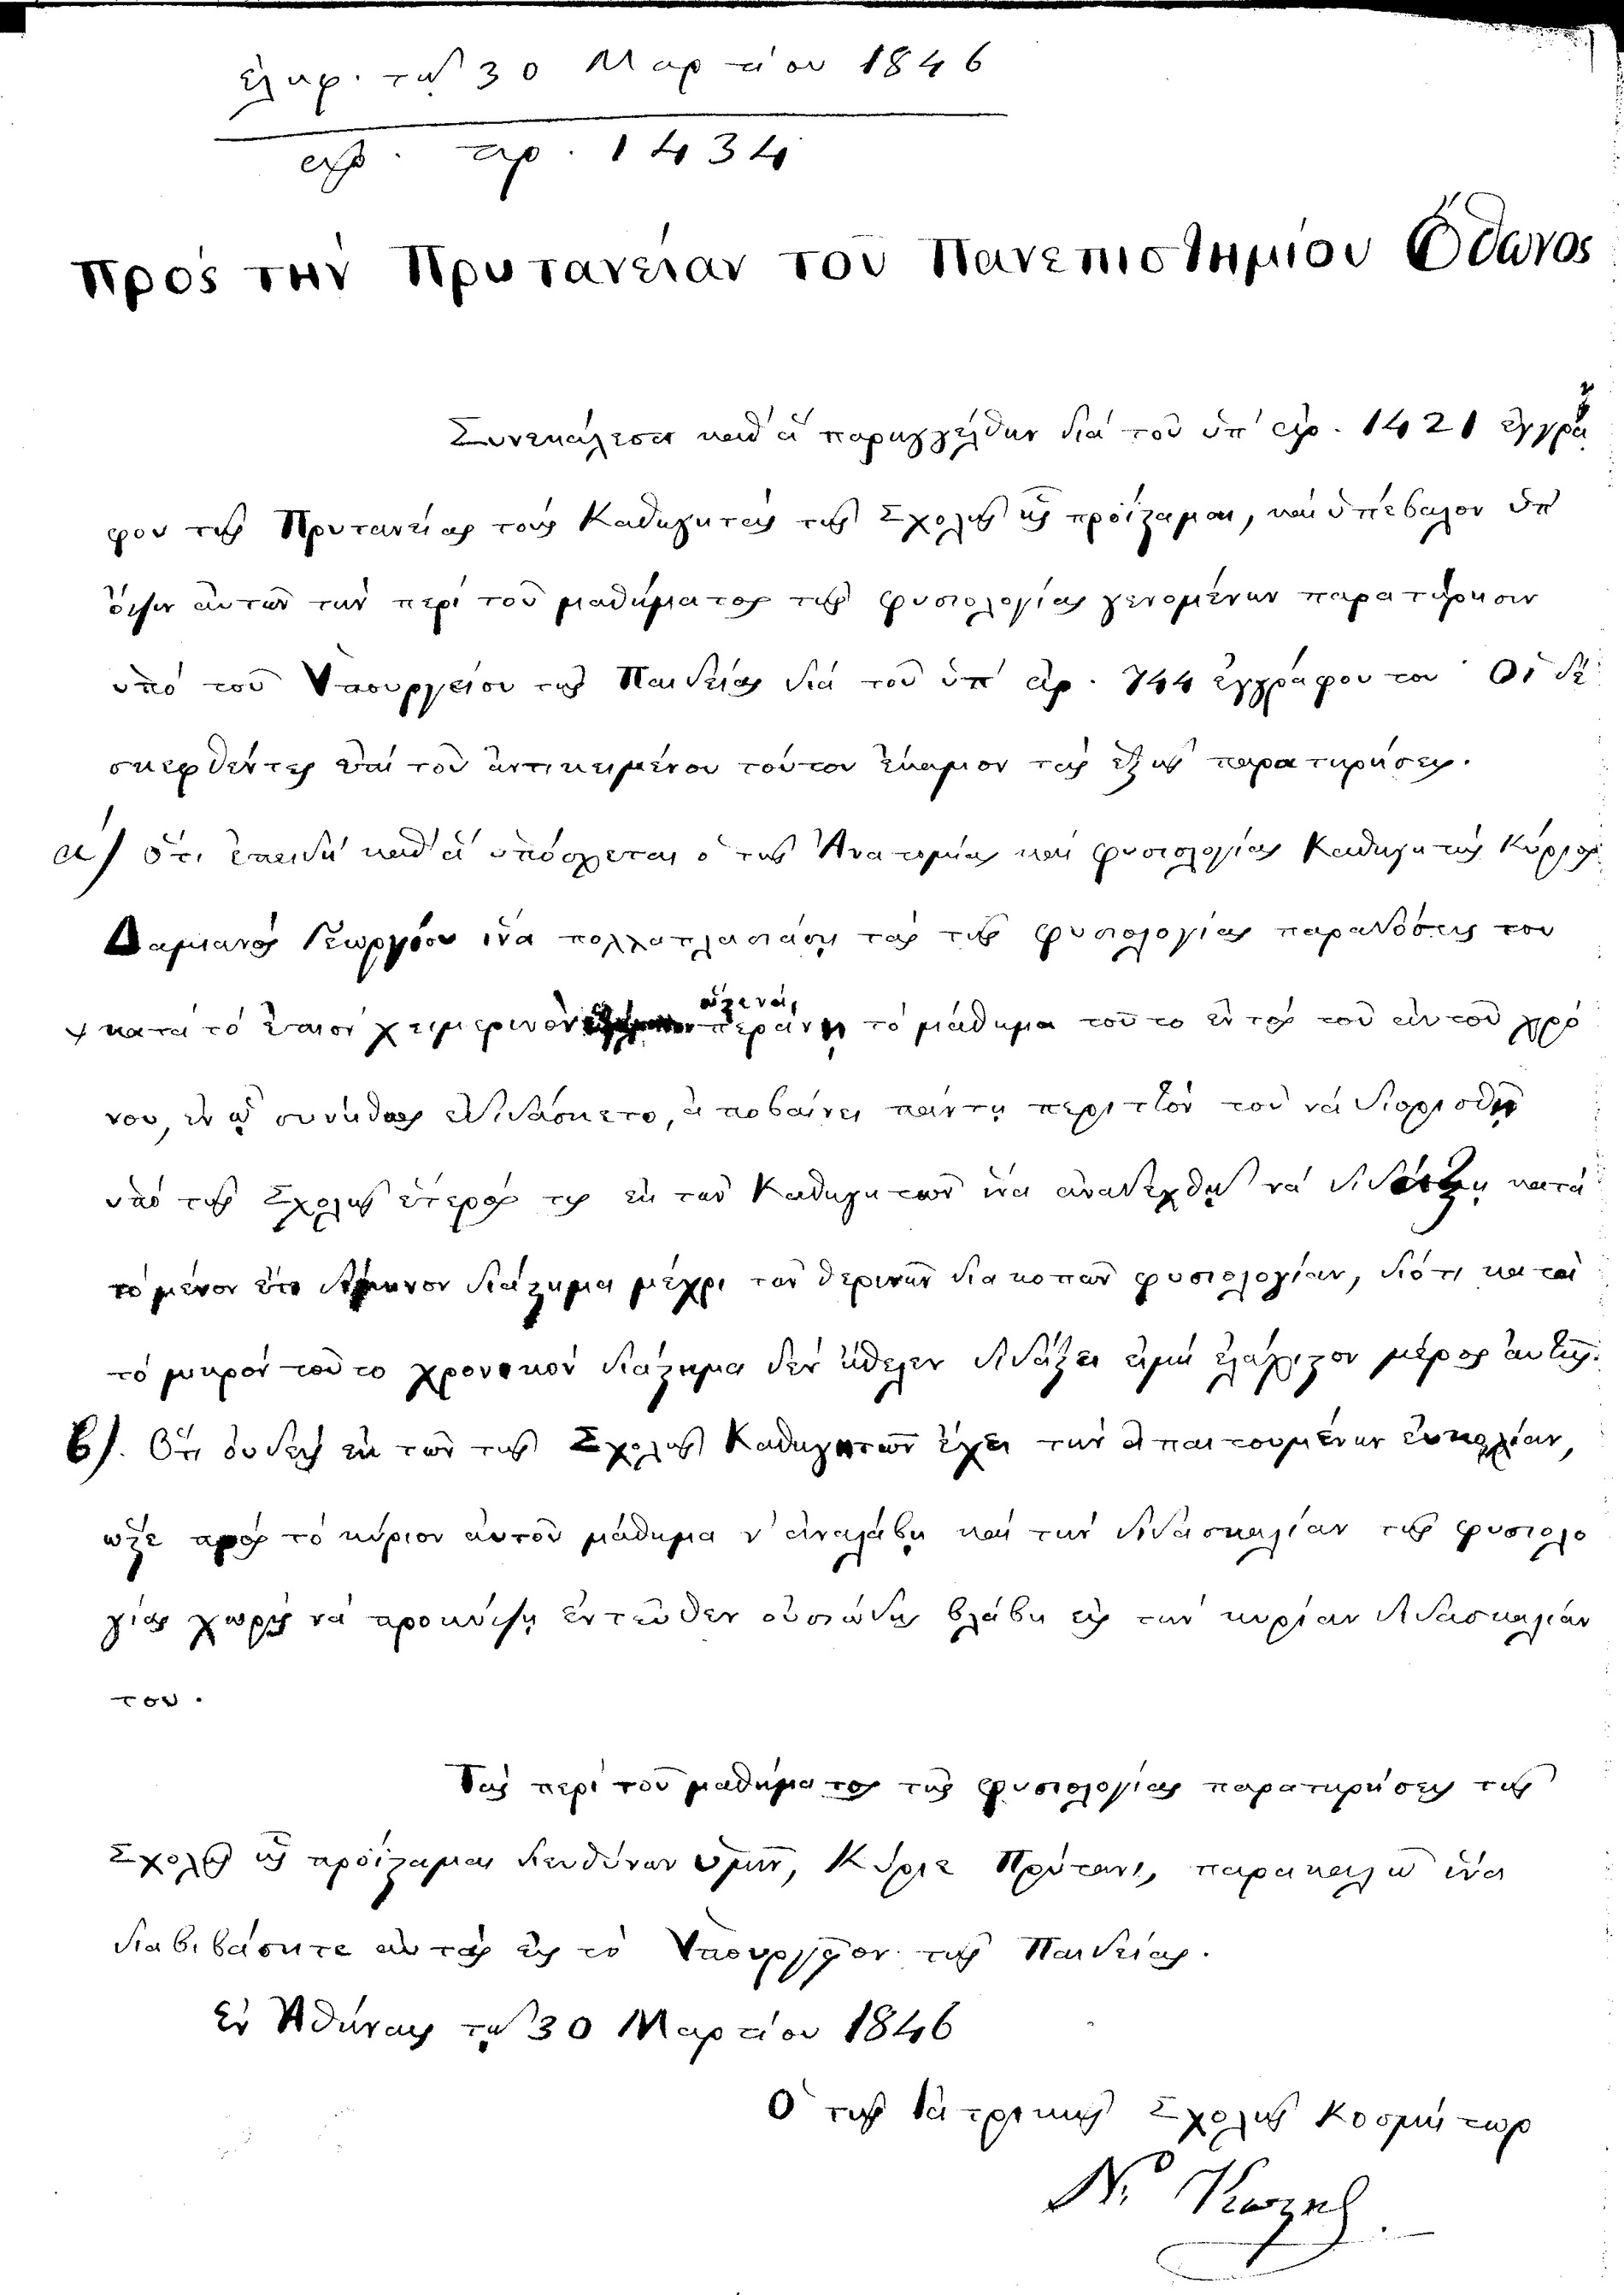 ἐλήφ. τῇ 30 Μαρτίου 1846
ἀρ. πρ. 1434
Πρὸς τὴν Πρυτανείαν τοῦ Πανεπιστημίου Ὄθωνος
Συνεκάλεσα καθ' ἃ παρηγγέλθην διὰ τοῦ ὑπ' ἀρ. 1421 ἐγγρά
φου τῆς Πρυτανείας τοὺς Καθηγητὰς τῆς Σχολῆς ἧς προΐσταμαι, καὶ ὑπέβαλον ὑπ'
ὄψιν αὐτῶν τὴν περὶ τοῦ μαθήματος τῆς φυσιολογίας γενομένην παρατήρησιν
ὑπὸ τοῦ Ὑπουργείου τῆς Παιδείας διὰ τοῦ ὑπ' ἀρ. 744 ἐγγράφου του· Οἱ δὲ
σκεφθέντες ἐπὶ τοῦ ἀντικειμένου τούτου ἔκαμον τὰς ἑξῆς παρατηρήσεις.
α) Ὅτι ἐπειδὴ καθ' ἃ ὑπόσχεται ὁ τῆς Ἀνατομίας καὶ φυσιολογίας Καθηγητὴς Κύριος
Δαμιανὸς Γεωργίου ἵνα πολλαπλασιάσῃ τὰς τῆς φυσιολογίας παραδόσεις του
κατὰ τὸ ἐπιὸν χειμερινὸν ὥστε νὰ περάνῃ τὸ μάθημα τοῦτο ἐντὸς τοῦ αὐτοῦ χρό
νου, ἐν ᾧ συνήθως ἐδιδάσκετο, ἀποβαίνει πάντῃ περιττὸν τοῦ νὰ διορισθῇ
ὑπὸ τῆς Σχολῆς ἕτερός τις ἐκ τῶν Καθηγητῶν ἵνα ἀναδεχθῇ νὰ διδάξῃ κατὰ
τὸ μένον ἔτι δίμηνον διάστημα μέχρι τῶν θερινῶν διακοπῶν φυσιολογίαν, διότι κατὰ
τὸ μικρὸν τοῦτο χρονικὸν διάστημα δὲν ἤθελεν διδάξει εἰμὴ ἐλάχιστον μέρος αὐτῆς.
β). Ὅτι οὐδεὶς ἐκ τῶν τῆς Σχολῆς Καθηγητῶν ἔχει τὴν ἀπαιτουμένην εὐκολίαν,
ὥστε πρὸς τὸ κύριον αὐτοῦ μάθημα ν' ἀναλάβῃ καὶ τὴν διδασκαλίαν τῆς φυσιολο
γίας χωρὶς νὰ προκύψῃ ἐντεῦθεν οὐσιώδης βλάβη εἰς τὴν κυρίαν διδασκαλίαν
του.
Τὰς περὶ τοῦ μαθήματος τῆς φυσιολογίας παρατηρήσεις τῆς
Σχολῆς ἧς προΐσταμαι διευθύνων ὑμῖν, Κύριε Πρύτανι, παρακαλῶ ἵνα
διαβιβάσητε αὐτὰς εἰς τὸ Ὑπουργεῖον τῆς Παιδείας.
Ἐν Ἀθήναις τῇ 30 Μαρτίου 1846
Ὁ τῆς Ἰατρικῆς Σχολῆς Κοσμήτωρ
Ν. Κωστῆς